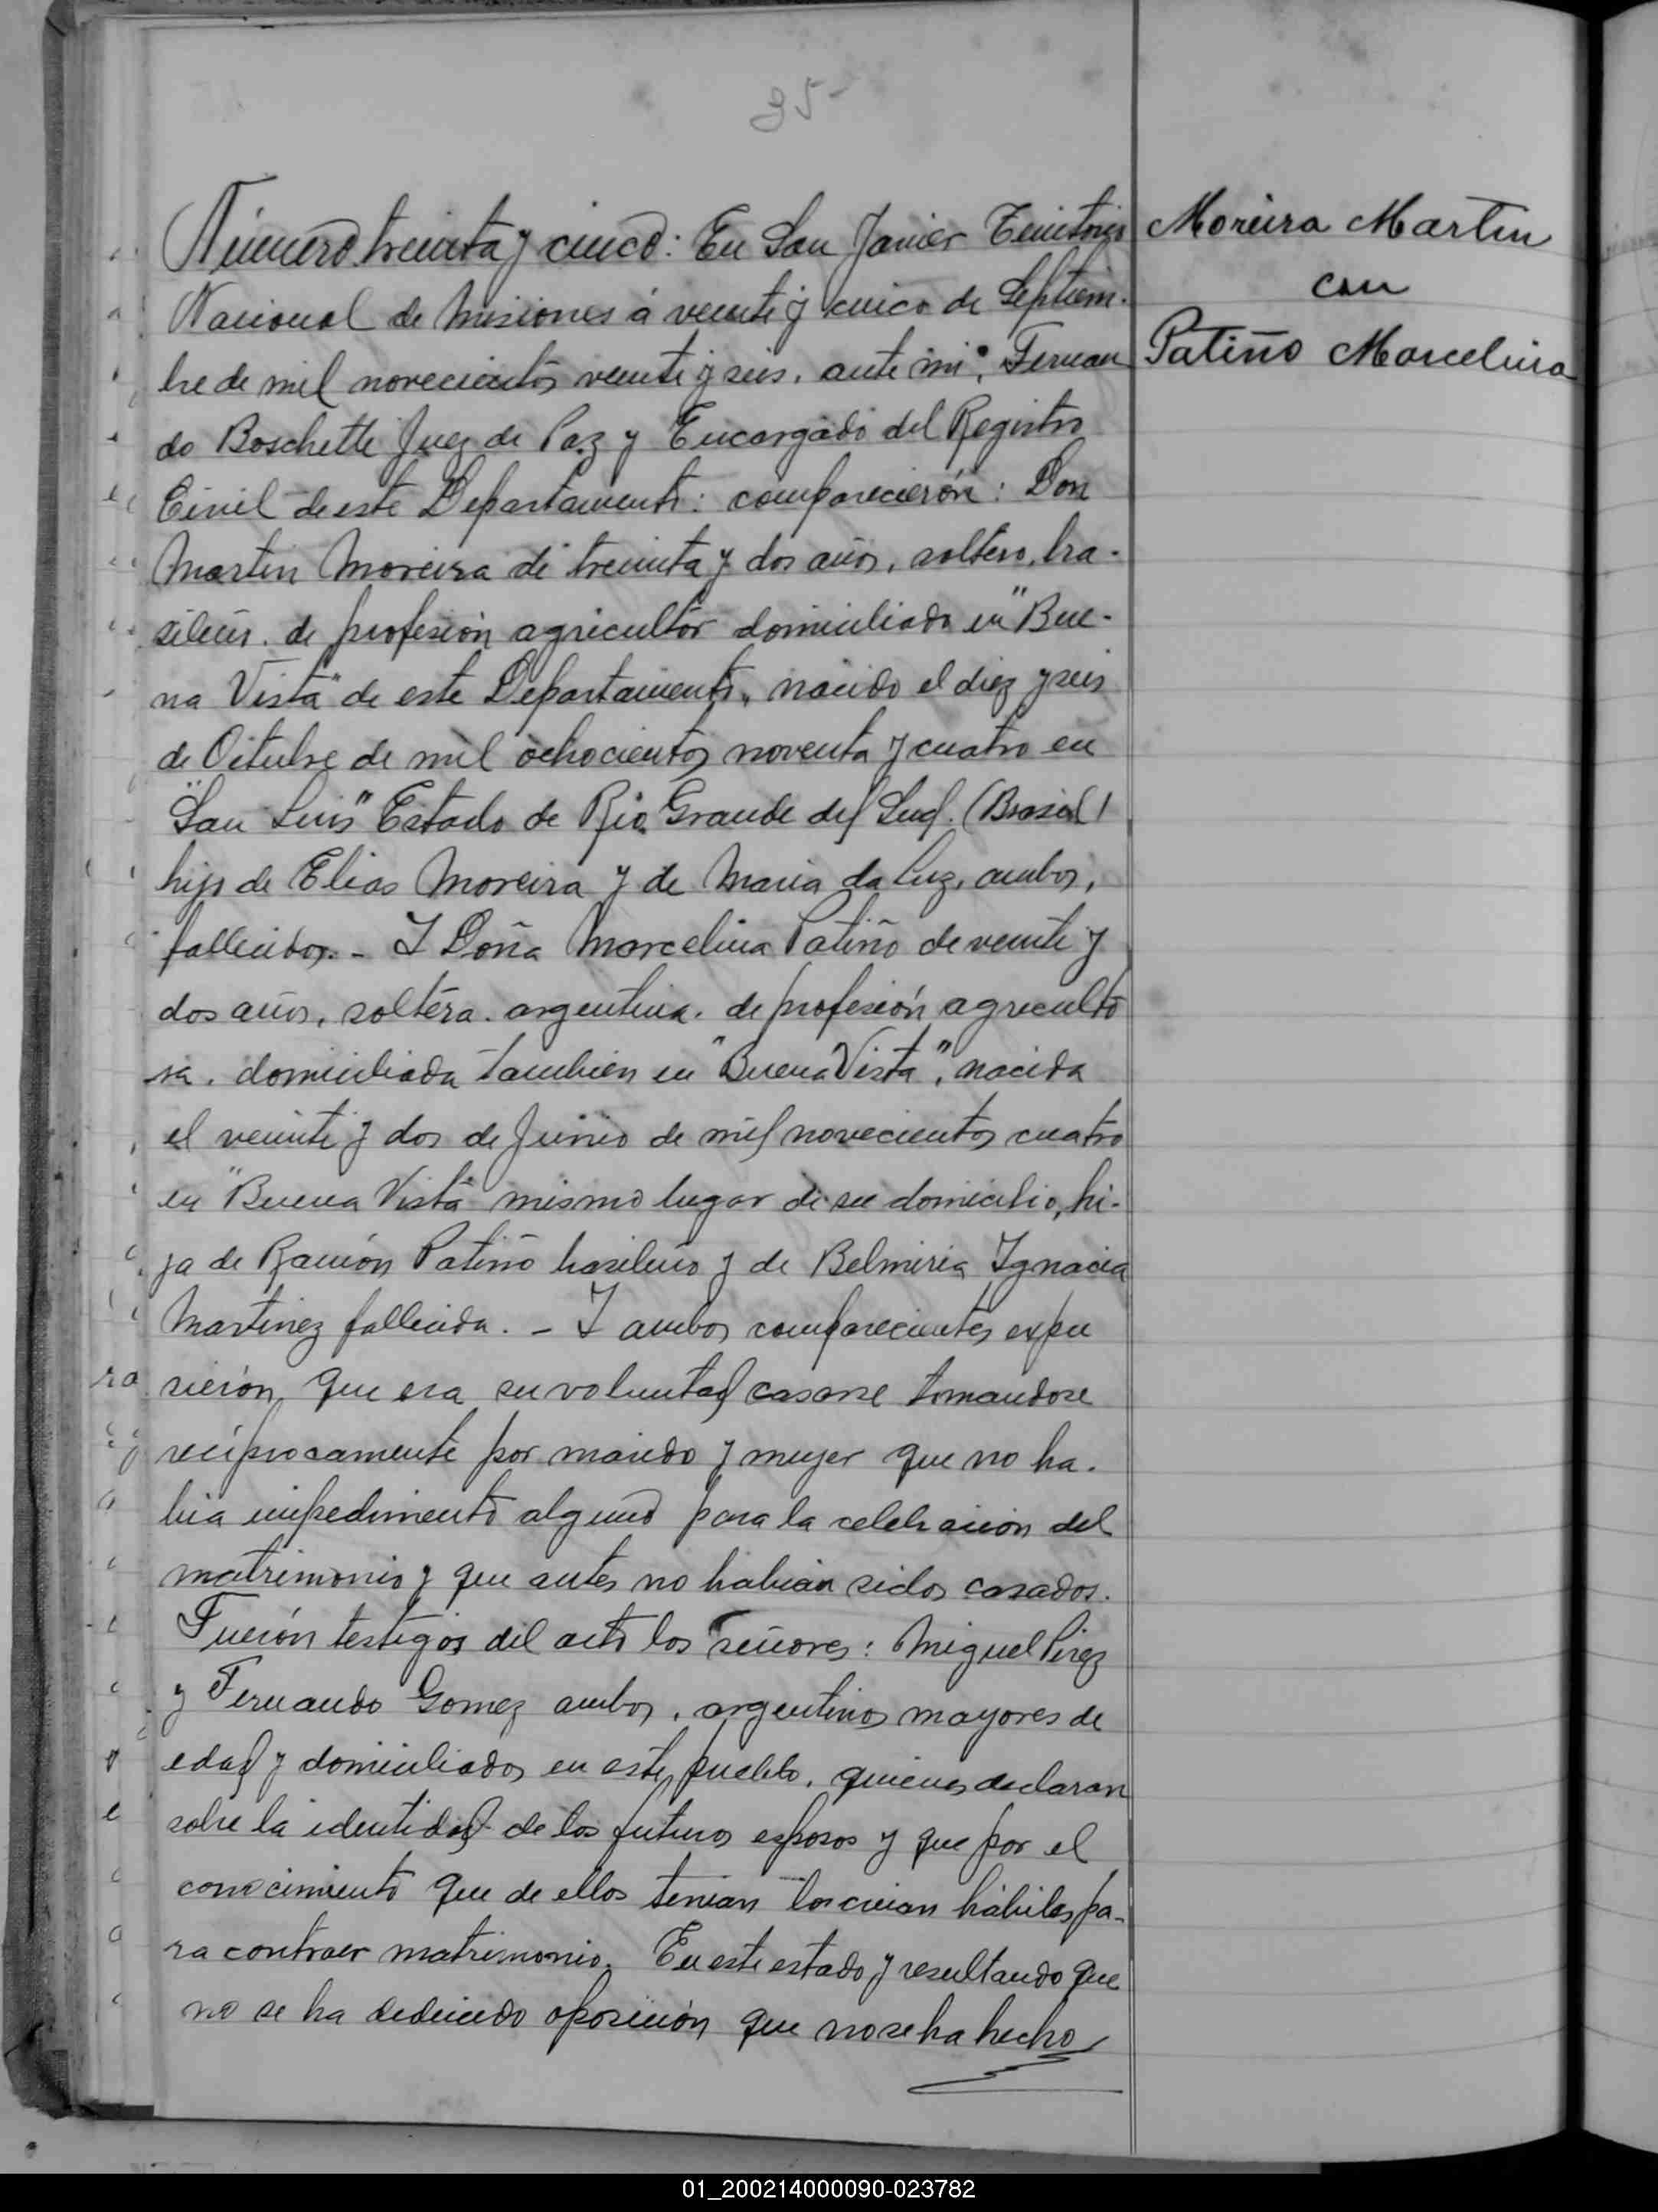 35
Número treinta y cinco: En San Javier Territorio
Nacional de Misiones á veinte y cinco de Septiem-
bre de mil novecientos veinte y seis, ante mi, Fernan
do Boschetti Juez de Paz y Encargado del Registro
Civil de este Departamento: comparecierón: Don
Martin Moreira de treinta y dos años, soltero, bra-
sileño. de profesión agricultor domiciliado en "Bue-
na Vista" de este Departamento, nacido el diez y seis
de Octubre de mil ochocientos noventa y cuatro en
"San Luis" Estado de Rio Grande del Sud. (Brasil)
hijo de Elias Moreira y de Maria da Luz, ambos,
fallecidos. - Y Doña Marcelina Patiño de veinte y
dos años, soltera. argentina. de profesión agriculto
ra. domiciliada tambien en "Buena Vista", nacida
el veinte y dos de Junio de mil novecientos cuatro
en "Buena Vista" mismo lugar de su domicilio, hi-
ja de Ramón Patiño brasileño y de Belmiria Ignacia
Martinez fallecida. - Y ambos comparecientes expu
sierón, que era su voluntad casarse tomandose
recíprocamente por marido y mujer que no ha-
bia impedimento alguno para la celebración del
matrimonio y que antes no habian sidos casados.
Fuerón testigos del acto los señores: Miguel Pirez
y Fernando Gomez ambos, argentinos mayores de
edad y domiciliados en este pueblo, quienes declaran
sobre la identidad de los futuros esposos y que por el
conocimiento que de ellos tenian los creian hábiles pa-
ra contraer matrimonio. En este estado y resultando que
no se ha deducido oposición que no se ha hecho
Moreira Martin
con
Patiño Marcelina
ra
01_200214000090-023782